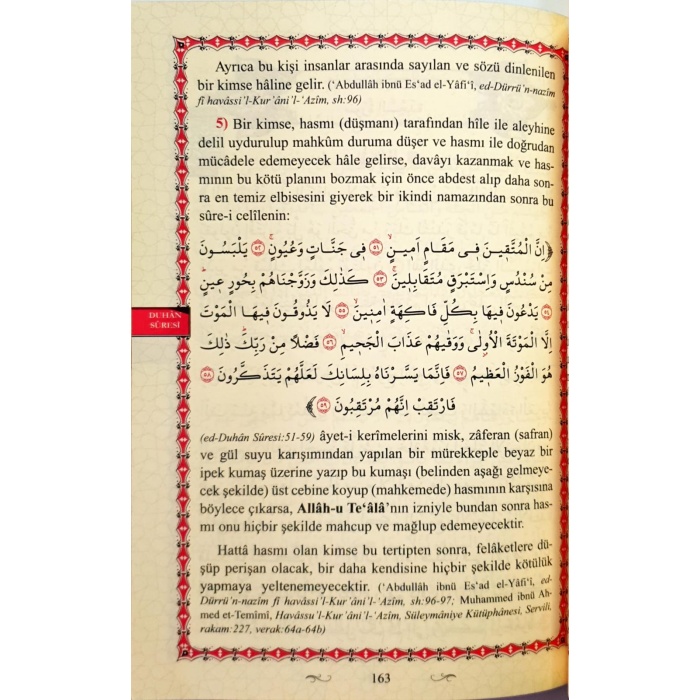 Ayrıca bu kişi insanlar arasında sayılan ve sözü dinlenilen
bir kimse hâline gelir. (‘Abdullâh ibnü Es‘ad el-Yâfi‘î, ed-Dürrü’n-nazîm
fî havâssi’l-Kur’âni’l-‘Azîm, sh:96)
5) Bir kimse, hasmı (düşmanı) tarafından hîle ile aleyhine
delil uydurulup mahkûm duruma düşer ve hasmı ile doğrudan
mücâdele edemeyecek hâle gelirse, davâyı kazanmak ve has-
mının bu kötü planını bozmak için önce abdest alıp daha son-
ra en temiz elbisesini giyerek bir ikindi namazından sonra bu
sûre-i celîlenin:
﴿اِنَّ الْمُتَّقٖينَ فٖي مَقَامٍ اَمٖينٍۙ ﴿٥١﴾ فٖي جَنَّاتٍ وَعُيُونٍۚ ﴿٥٢﴾ يَلْبَسُونَ
مِنْ سُنْدُسٍ وَاِسْتَبْرَقٍ مُتَقَابِلٖينَۚ ﴿٥٣﴾ كَذٰلِكَ وَزَوَّجْنَاهُمْ بِحُورٍ عٖينٍۜ
﴿٥٤﴾ يَدْعُونَ فٖيهَا بِكُلِّ فَاكِهَةٍ اٰمِنٖينَۙ ﴿٥٥﴾ لَا يَذُوقُونَ فٖيهَا الْمَوْتَ
اِلَّا الْمَوْتَةَ الْاُولٰىۚ وَوَقٰيهُمْ عَذَابَ الْجَحٖيمِۙ ﴿٥٦﴾ فَضْلًا مِنْ رَبِّكَۜ ذٰلِكَ
هُوَ الْفَوْزُ الْعَظٖيمُ ﴿٥٧﴾ فَاِنَّمَا يَسَّرْنَاهُ بِلِسَانِكَ لَعَلَّهُمْ يَتَذَكَّرُونَ ﴿٥٨﴾
فَارْتَقِبْ اِنَّهُمْ مُرْتَقِبُونَ ﴿٥٩﴾﴾
DUHÂN
SÛRESİ
(ed-Duhân Sûresi:51-59) âyet-i kerîmelerini misk, zâferan (safran)
ve gül suyu karışımından yapılan bir mürekkeple beyaz bir
ipek kumaş üzerine yazıp bu kumaşı (belinden aşağı gelmeye-
cek şekilde) üst cebine koyup (mahkemede) hasmının karşısına
böylece çıkarsa, Allâh-u Te‘âlâ’nın izniyle bundan sonra has-
mı onu hiçbir şekilde mahcup ve mağlup edemeyecektir.
Hattâ hasmı olan kimse bu tertipten sonra, felâketlere dü-
şüp perişan olacak, bir daha kendisine hiçbir şekilde kötülük
yapmaya yeltenemeyecektir. (‘Abdullâh ibnü Es‘ad el-Yâfi‘î, ed-
Dürrü’n-nazîm fî havâssi’l-Kur’âni’l-‘Azîm, sh:96-97; Muhammed ibnü Ah-
med et-Temîmî, Havâssu’l-Kur’âni’l-‘Azîm, Süleymâniye Kütüphânesi, Servili,
rakam:227, verak:64a-64b)
163